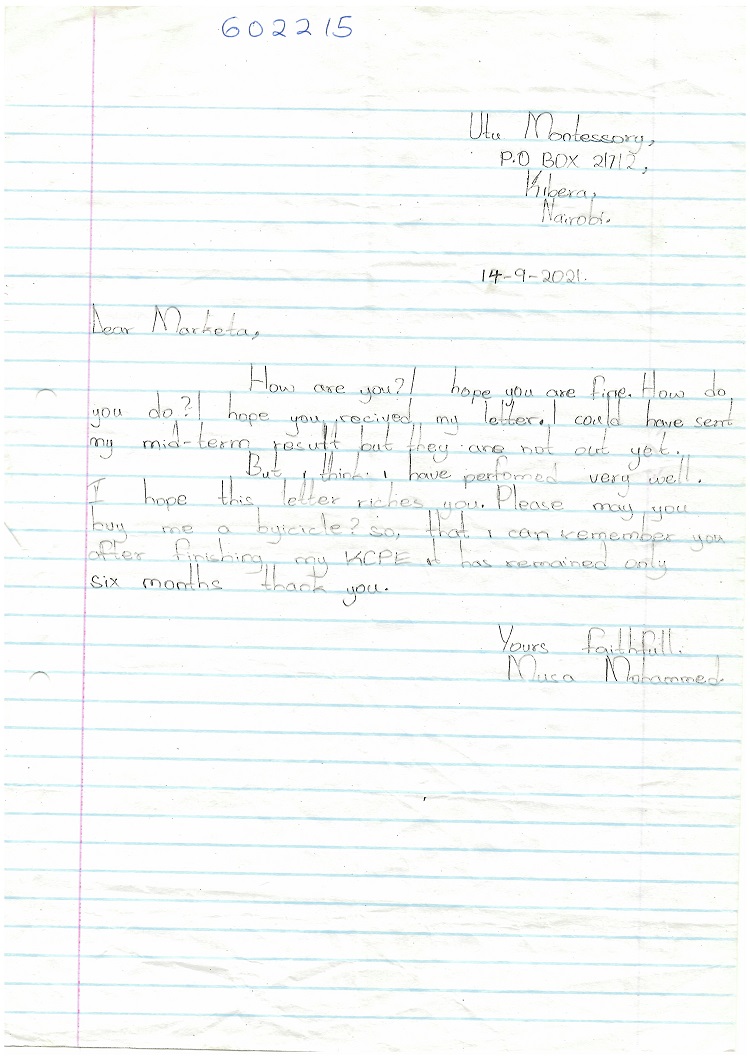 602215
Utu Montessory,
P.O BOX 21712,
Kibera,
Nairobi.
14-9-2021.
Dear Marketa,
How are you? I hope you are fine. How do
you do? I hope you recived my letter. I could have sent
my mid-term result but they are not out yet.
But i think i have perfomed very well.
I hope this letter riches you. Please may you
buy me a byicicle? so, that i can remember you
after finishing my KCPE it has remained only
six months thank you.
Yours faithfull.
Musa Mohammed.